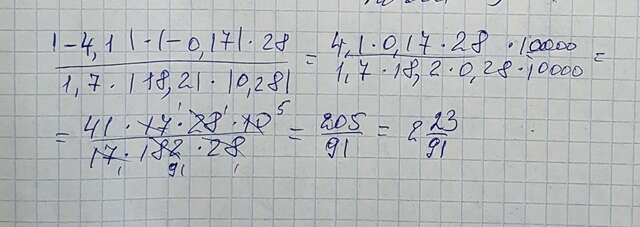 |-4,1|·|-0,17|·28 / 1,7·|18,2|·|0,28| = 4,1·0,17·28·10000 / 1,7·18,2·0,28·10000 =
= 41·17·28·10 5 / 17·182·28 = 205/91 = 2 23/91
1 1 1 91 1